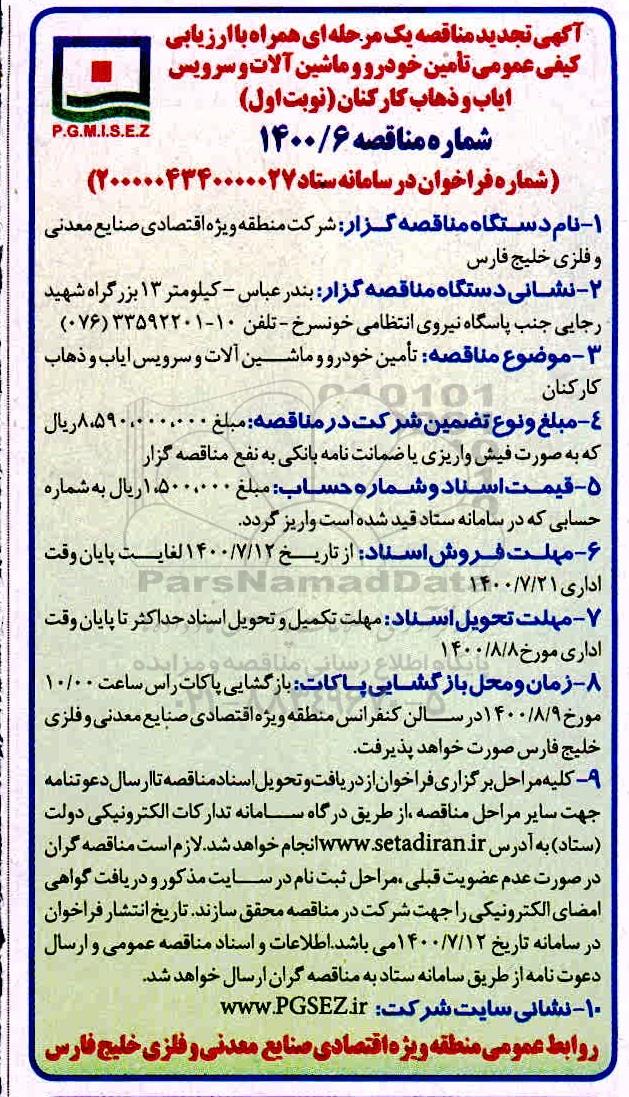 آگهی تجدید مناقصه یک مرحله ای همراه با ارزیابی
کیفی عمومی تأمین خودرو و ماشین آلات و سرویس
ایاب و ذهاب کارکنان (نوبت اول)
P.G.M.I.S.E.Z
شماره مناقصه ۱۴۰۰/۶
(شماره فراخوان در سامانه ستاد ۲۰۰۰۰۰۴۳۴۰۰۰۰۰۲۷)
۱-نام دستگاه مناقصه گزار: شرکت منطقه ویژه اقتصادی صنایع معدنی
و فلزی خلیج فارس
۲-نشانی دستگاه مناقصه گزار: بندرعباس – کیلومتر ۱۳ بزرگراه شهید
رجایی جنب پاسگاه نیروی انتظامی خونسرخ - تلفن ۱۰-۳۳۵۹۲۲۰۱ (۰۷۶)
۳-موضوع مناقصه: تأمین خودرو و ماشین آلات و سرویس ایاب و ذهاب
کارکنان
۴-مبلغ و نوع تضمین شرکت در مناقصه: مبلغ ۸،۵۹۰،۰۰۰،۰۰۰ ریال
که به صورت فیش واریزی یا ضمانت نامه بانکی به نفع مناقصه گزار
۵-قیمت اسناد و شماره حساب: مبلغ ۱،۵۰۰،۰۰۰ ریال به شماره
حسابی که در سامانه ستاد قید شده است واریز گردد.
۶-مهلت فروش اسناد: از تاریخ ۱۴۰۰/۷/۱۲ لغایت پایان وقت
اداری ۱۴۰۰/۷/۲۱
۷-مهلت تحویل اسناد: مهلت تکمیل و تحویل اسناد حداکثر تا پایان وقت
اداری مورخ ۱۴۰۰/۸/۸
۸-زمان و محل بازگشایی پاکات: بازگشایی پاکات راس ساعت ۱۰/۰۰
مورخ ۱۴۰۰/۸/۹ در سالن کنفرانس منطقه ویژه اقتصادی صنایع معدنی و فلزی
خلیج فارس صورت خواهد پذیرفت.
۹-کلیه مراحل برگزاری فراخوان از دریافت و تحویل اسناد مناقصه تا ارسال دعوتنامه
جهت سایر مراحل مناقصه ،از طریق درگاه سامانه تدارکات الکترونیکی دولت
(ستاد) به آدرس www.setadiran.ir انجام خواهد شد. لازم است مناقصه گران
در صورت عدم عضویت قبلی ،مراحل ثبت نام در سایت مذکور و دریافت گواهی
امضای الکترونیکی را جهت شرکت در مناقصه محقق سازند. تاریخ انتشار فراخوان
در سامانه تاریخ ۱۴۰۰/۷/۱۲ می باشد. اطلاعات و اسناد مناقصه عمومی و ارسال
دعوت نامه از طریق سامانه ستاد به مناقصه گران ارسال خواهد شد.
۱۰-نشانی سایت شرکت: www.PGSEZ.ir
روابط عمومی منطقه ویژه اقتصادی صنایع معدنی و فلزی خلیج فارس
ParsNamadData
پایگاه اطلاع رسانی مناقصه و مزایده